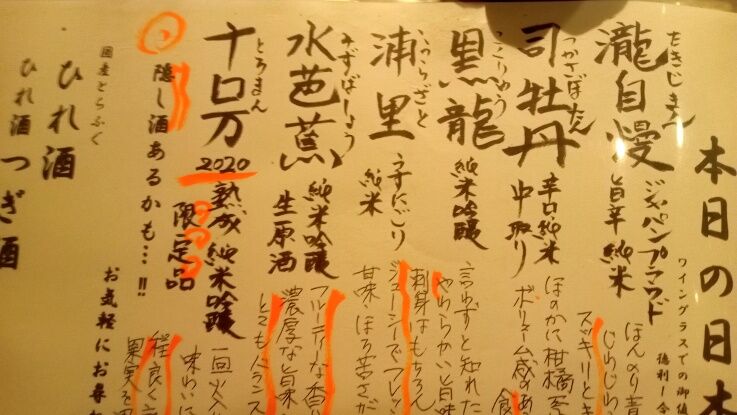 本日の日本
ワイングラスでの御
徳利一合
たきじまん
瀧自慢
ジャパンプラウド
旨辛 純米
ほんのり青
じわじわ
スッキリとキ
つかさぼたん
司牡丹
辛口純米
中取り
ほのかに柑橘系
ボリューム感のあ
食
こくりゅう
黒龍
純米吟醸
言わずと知れた
やわらかい旨味
刺身はもちろん
うらざと
浦里
うすにごり
純米
ジューシーでフレッ
甘味、ほろ苦さが
みずばしょう
水芭蕉
純米吟醸
生原酒
フルーティーな香り
濃厚な旨味
とてもバランス
とろまん
十ロ万
2020
熟成 純米吟醸
限定品
一回火入
味わいに
程良く
果実を
隠し酒あるかも…!!
お気軽にお尋
国産とらふぐ
ひれ酒
ひれ酒 つぎ酒